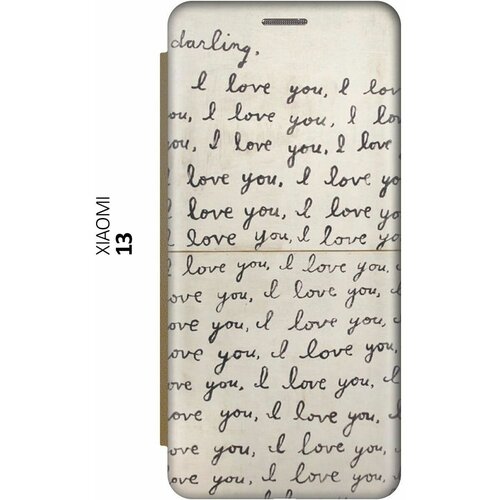 XIAOMI
13
darling,
I love you, I lov
ou, I love you, I lov
you, I love you, I love
I love you, I love yo
I love you, I love yo
I love you, I love yo
I love you, I love you,
love you, I love you, I
ove you, I love you, I
ove you, I love you,
love you, I love you, I
ove you, I love you,
ove you, I love you,
love you, I love you,